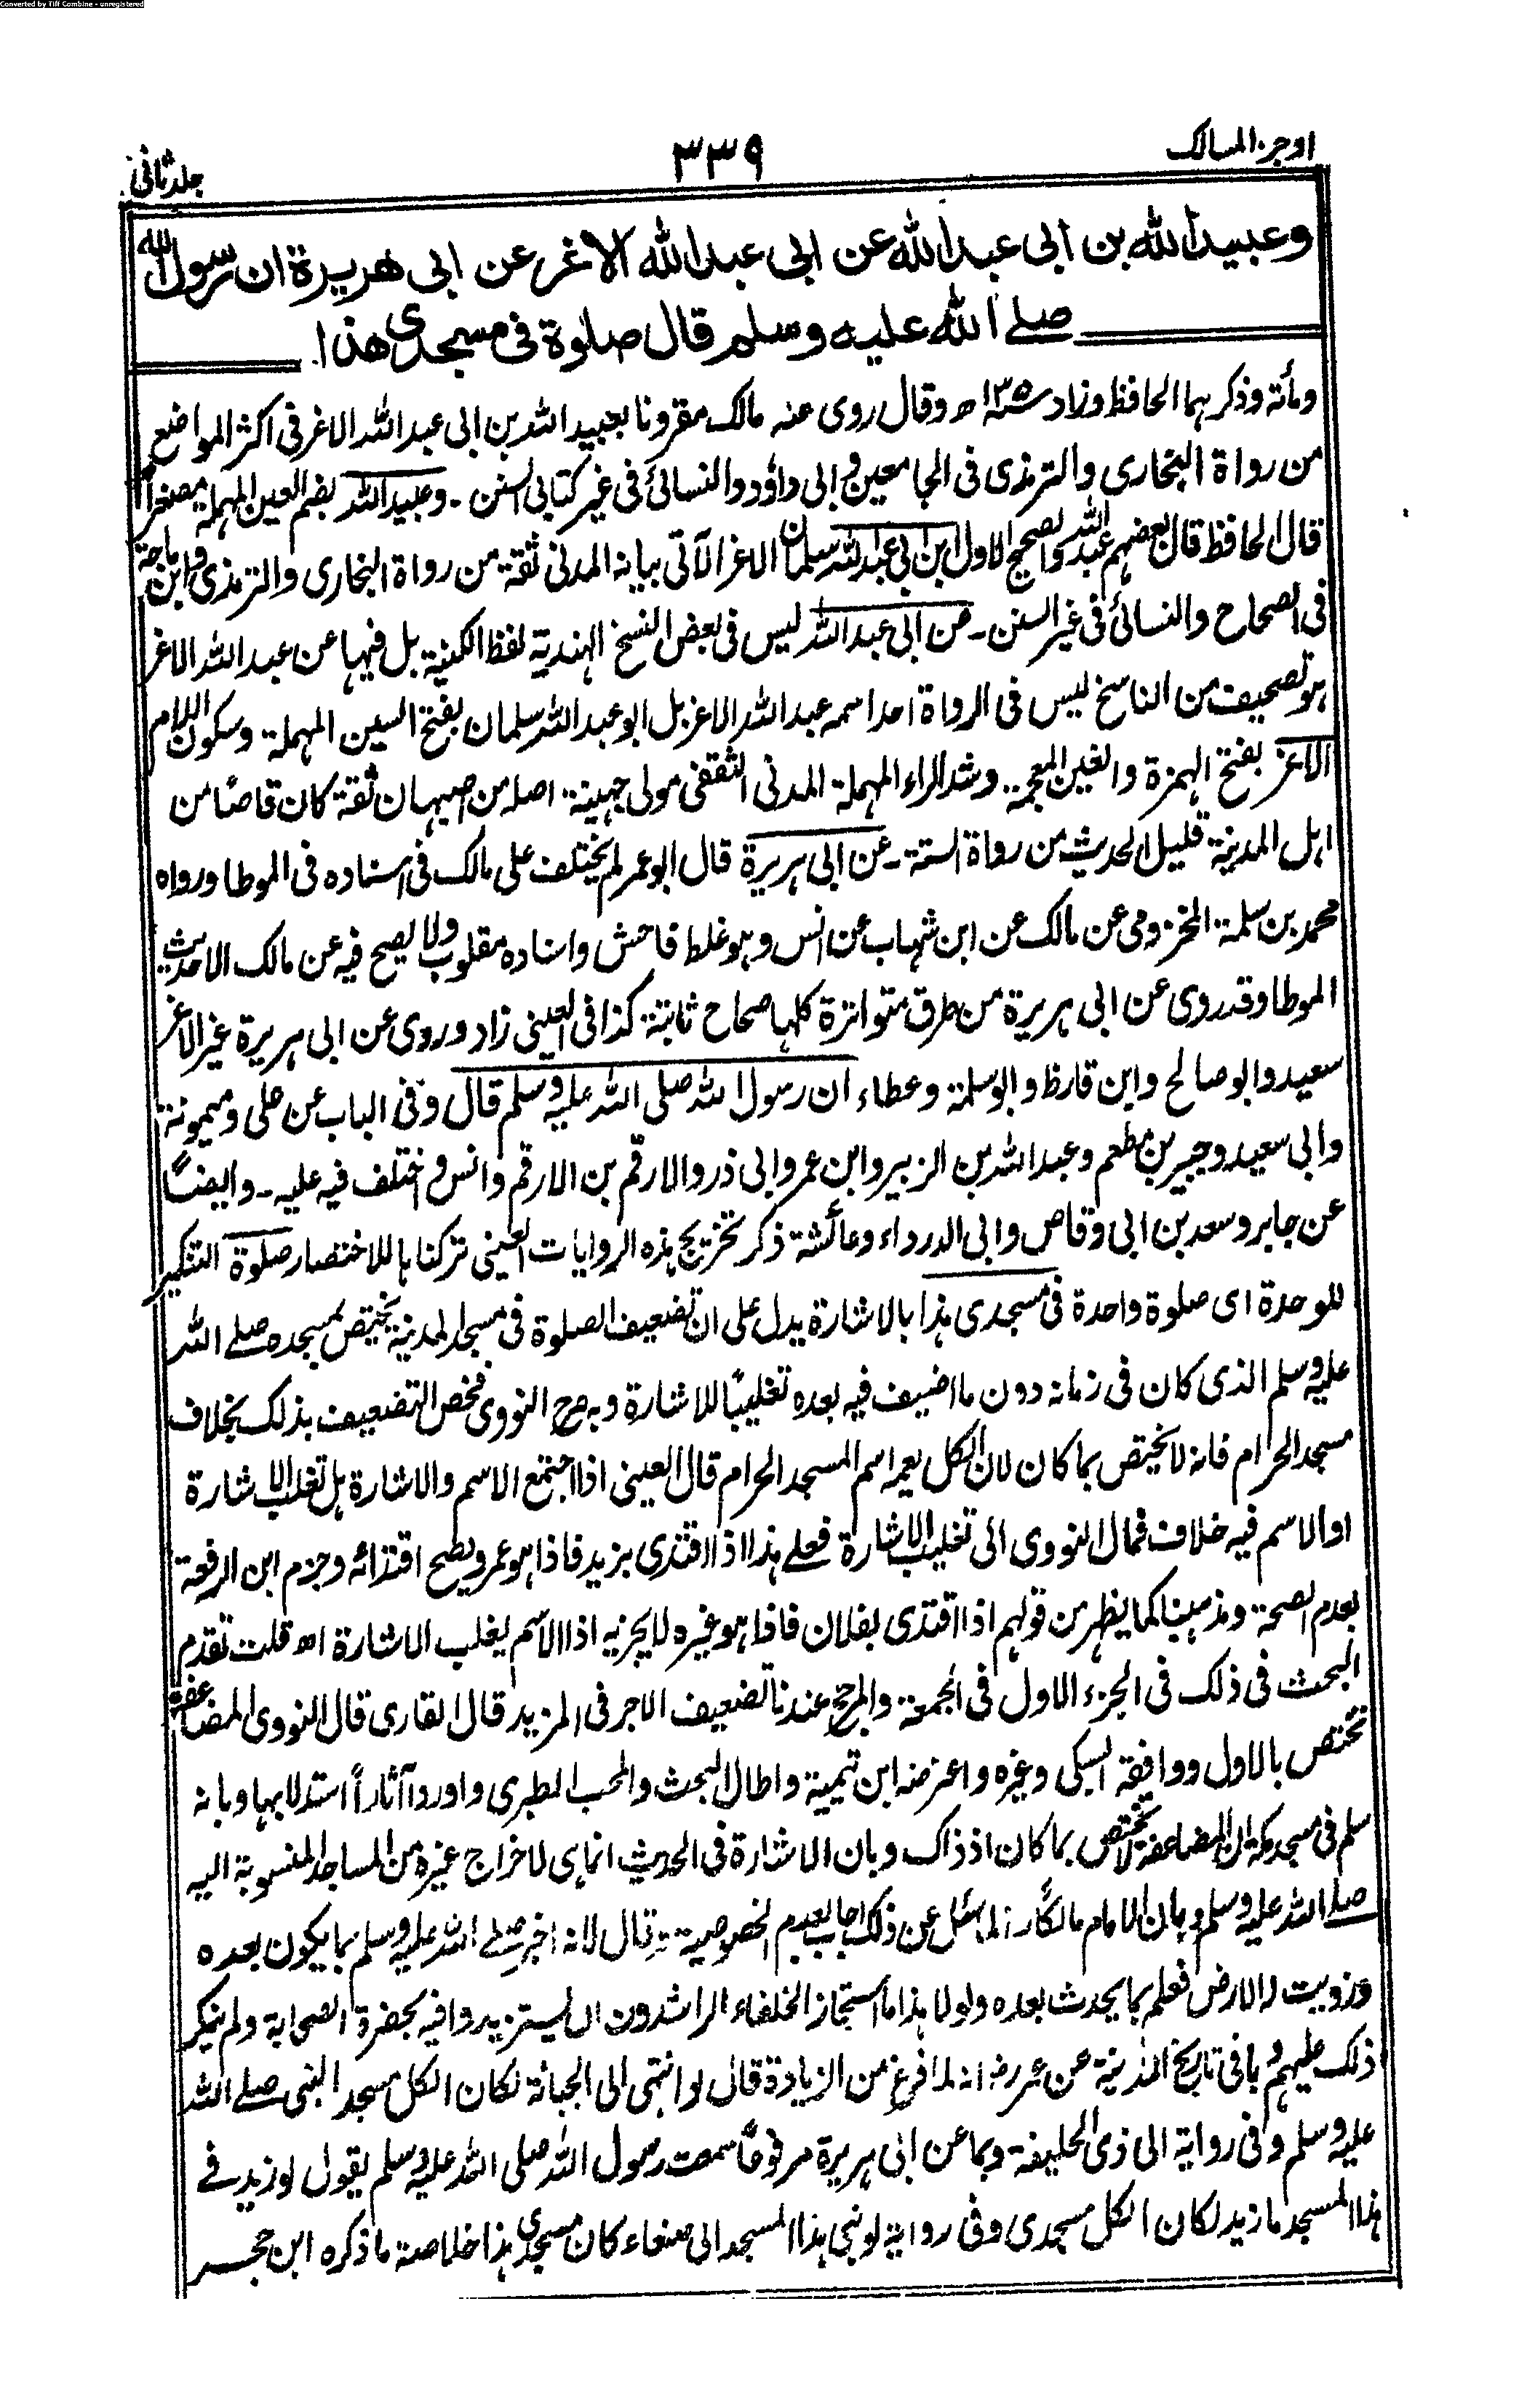 Converted by Tiff Combine - unregistered
اوجز المسالك
٣٣٩
جلد ثانى
وعبيد الله بن ابى عبد الله عن ابى عبد الله الاغر عن ابى هريرة ان رسول الله
صلے الله عليه وسلم قال صلوة فى مسجدى هذا
ومأته وذكرهما الحافظ وزاد سنة ١٣٥ه وقال روى عنه مالك مقرونا بعبيد الله بن ابى عبد الله الاغر فى اكثر المواضع
من رواة البخارى والترمذى فى الجامعين وابى داؤد والنسائى فى غير كتابى السنن - وعبيد الله بضم العين المهملة مصغراً
قال الحافظ قال بعضهم عبد الله والصحيح الاول ابن ابى عبد الله سلمان الاغر الآتى بيانه المدنى ثقة من رواة البخارى والترمذى وابن ماجة
فى الصحاح والنسائى فى غير السنن - عن ابى عبد الله ليس فى بعض النسخ الهندية لفظ الكنية بل فيها عن عبد الله الاغر
هو تصحيف من الناسخ ليس فى الرواة احد اسمه عبد الله الاغر بل ابو عبد الله سلمان بفتح السين المهملة وسكون اللام
الاغر بفتح الهمزة والغين المعجمة وشد الراء المهملة المدنى الثقفى مولى جهينة اصله من اصبهان ثقة كان قاصًا من
اهل المدينة قليل الحديث من رواة الستة - عن ابى هريرة قال ابو عمر لم يختلف على مالك فى اسناده فى الموطا ورواه
محمد بن سلمة المخزومى عن مالك عن ابن شهاب عن انس وهو غلط فاحش واسناده مقلوب ولا يصح فيه عن مالك الا حديث
الموطا وقد روى عن ابى هريرة من طرق متواترة كلها صحاح ثابتة كذا فى العينى زاد وروى عن ابى هريرة غير الاغر
سعيد وابو صالح وابن قارظ وابو سلمة وعطاء ان رسول الله صلى الله عليه وسلم قال وفى الباب عن على وميمونة
وابى سعيد وجبير بن مطعم وعبد الله بن الزبير وابن عمر وابى ذر والارقم بن الارقم وانس واختلف فيه عليه - وايضاً
عن جابر وسعد بن ابى وقاص وابى الدرداء وعائشة ذكر تخريج هذه الروايات العينى تركناها للاختصار صلوة التنكير
للوحدة اى صلوة واحدة فى مسجدى هذا بالاشارة يدل على ان تضعيف الصلوة فى مسجد المدينة يختص بمسجده صلے الله
عليه وسلم الذى كان فى زمانه دون ما اضيف فيه بعده تغليبًا للاشارة وبه صرح النووى فخص التضعيف بذلك بخلاف
مسجد الحرام فانه لا يختص بما كان لان الكل يعمه اسم المسجد الحرام قال العينى اذا اجتمع الاسم والاشارة هل تغلب الاشارة
او الاسم فيه خلاف فمال النووى الى تغليب الاشارة فعلے هذا اذا اقتدى بزيد فاذا هو عمرو يصح اقتدائه وجزم ابن الرفعة
بعدم الصحة ومذهبنا كما يظهر من قولهم اذا اقتدى بفلان فاذا هو غيره لا يجزيه اذا الاسم يغلب الاشارة اه قلت تقدم
البحث فى ذلك فى الجزء الاول فى الجمعة والمرجح عندنا تضعيف الاجر فى المزيد قال القارى قال النووى المضاعفة
تختص بالاول ووافقه السبكى وغيره واعترضه ابن تيمية واطال البحث والمحب الطبرى واوردا آثاراً استدلا بها وبانه
سلم فى مسجد مكة ان المضاعفة لا تختص بما كان اذ ذاك وبان الاشارة فى الحديث انما هى لاخراج غيره من المساجد المنسوبة اليه
صلے الله عليه وسلم وبان الامام مالكًا لما سئل عن ذلك اجاب بعدم الخصوصية وقال لانه اخبر صلے الله عليه وسلم بما يكون بعده
وزويت له الارض فعلم بما يحدث بعده ولولا هذا ما استجاز الخلفاء الراشدون ان يستزيدوا فيه بحضرة الصحابة ولم ينكر
ذلك عليهم وبما فى تاريخ المدينة عن عمر رضـ انه لما فرغ من الزيادة قال لو انتهى الى الجبانة لكان الكل مسجد النبى صلے الله
عليه وسلم وفى رواية الى ذى الحليفة وبما عن ابى هريرة مرفوعًا سمعت رسول الله صلى الله عليه وسلم يقول لو زيد فے
هذا المسجد ما زيد لكان الكل مسجدى وفى رواية لو بنى هذا المسجد الى صنعاء كان مسجدى هذا خلاصة ما ذكره ابن حجر